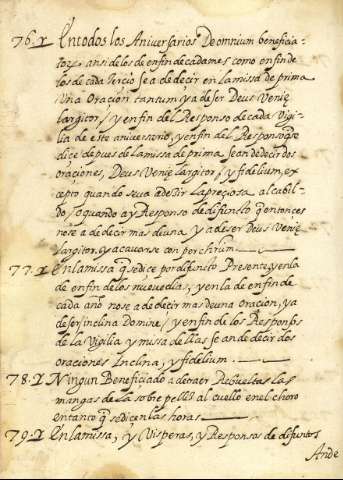 76. Y En todos los Aniversarios De omnium beneficia
tor, ansi de los de enfin de cada mes como en fin de
los de cada tercio se a de decir en la missa de prima
una Oracion tantum, y a de ser Deus Venie
largitor, / y en fin del Responso de cada Vigi
lia de este aniversario, y en fin del Responso q̃ se
dice depues de la missa de prima, se an de dedir dos
oraciones, Deus Venie largitor, / y fidelium, ex
cepto quando se va a Pedir La preçiosa al cabil
do, / o quando ay Responso de difuncto q̃ entonces
no se a de decir mas de una y a de ser Deus Venie
largitor. y acavarse con per chrum.
77. Y En la missa q̃ se dice por difuncto Presente, y en la
de en fin de los nuevedias, y en la de enfin de
cada año no se a de decir mas de una oracion, y a
de ser, inclina Domine, / y en fin de los Responsos
de la Vigilia y missa de ellas se an de decir dos
oraciones Inclina, y fidelium.
78. Y Ningun Beneficiado a de traer Rebueltas las
mangas de la sobre pelliz al cuello en el choro
entanto q̃ se diçen las horas
79. Y En la missa, y Visperas, y Responsos de difuntos
Ande